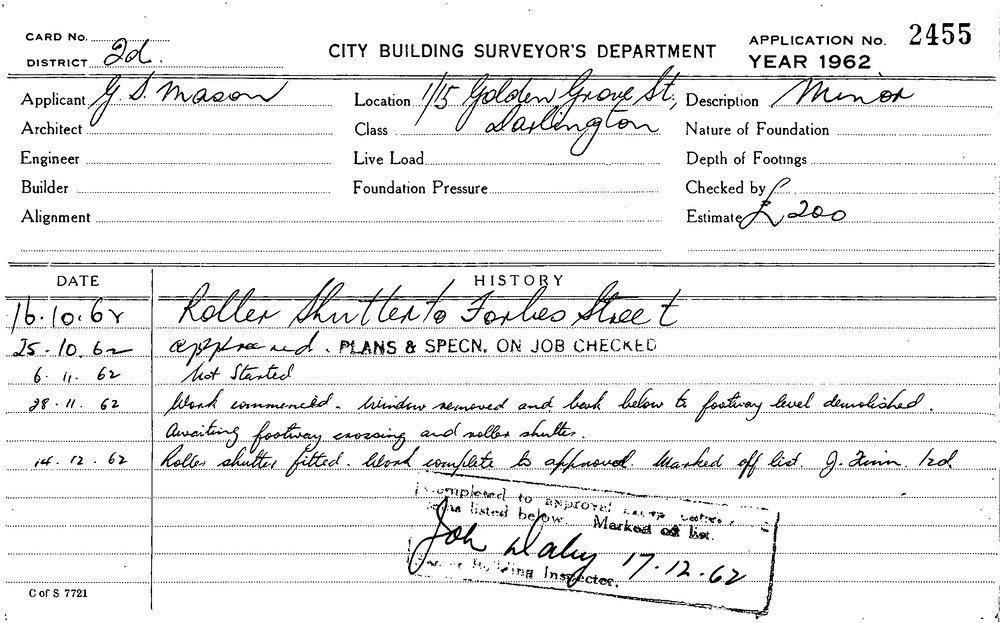 CARD No.
DISTRICT 2d.
CITY BUILDING SURVEYOR'S DEPARTMENT
APPLICATION No. 2455
YEAR 1962
Applicant G. S. Mason
Location 1/15 Golden Grove St,
Description Minor
Architect
Class Darlington
Nature of Foundation
Engineer
Live Load
Depth of Footings
Builder
Foundation Pressure
Checked by
Alignment
Estimate £ 200
DATE HISTORY
16.10.62 Roller Shutter to Forbes Street
25.10.62 approved. PLANS & SPECN. ON JOB CHECKED
6.11.62 Not Started
28.11.62 Work commenced. Window removed and back below to footway level demolished.
Awaiting footway crossing and roller shutter.
14.12.62 Roller shutter fitted. Work complete to approval. Marked off list. J.
Completed to approval
listed below. Marked off list.
Joh Daly 17.12.62
Building Inspector.
C of S 7721